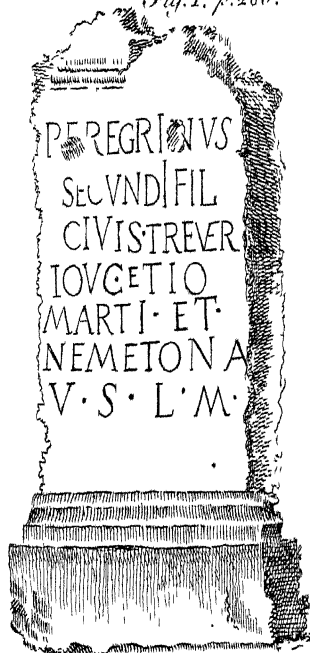 PEREGRINVS
SECVNDI FIL
CIVIS·TREVER
IOVCETIO
MARTI· ET·
NEMETONA
V·S·L·M·